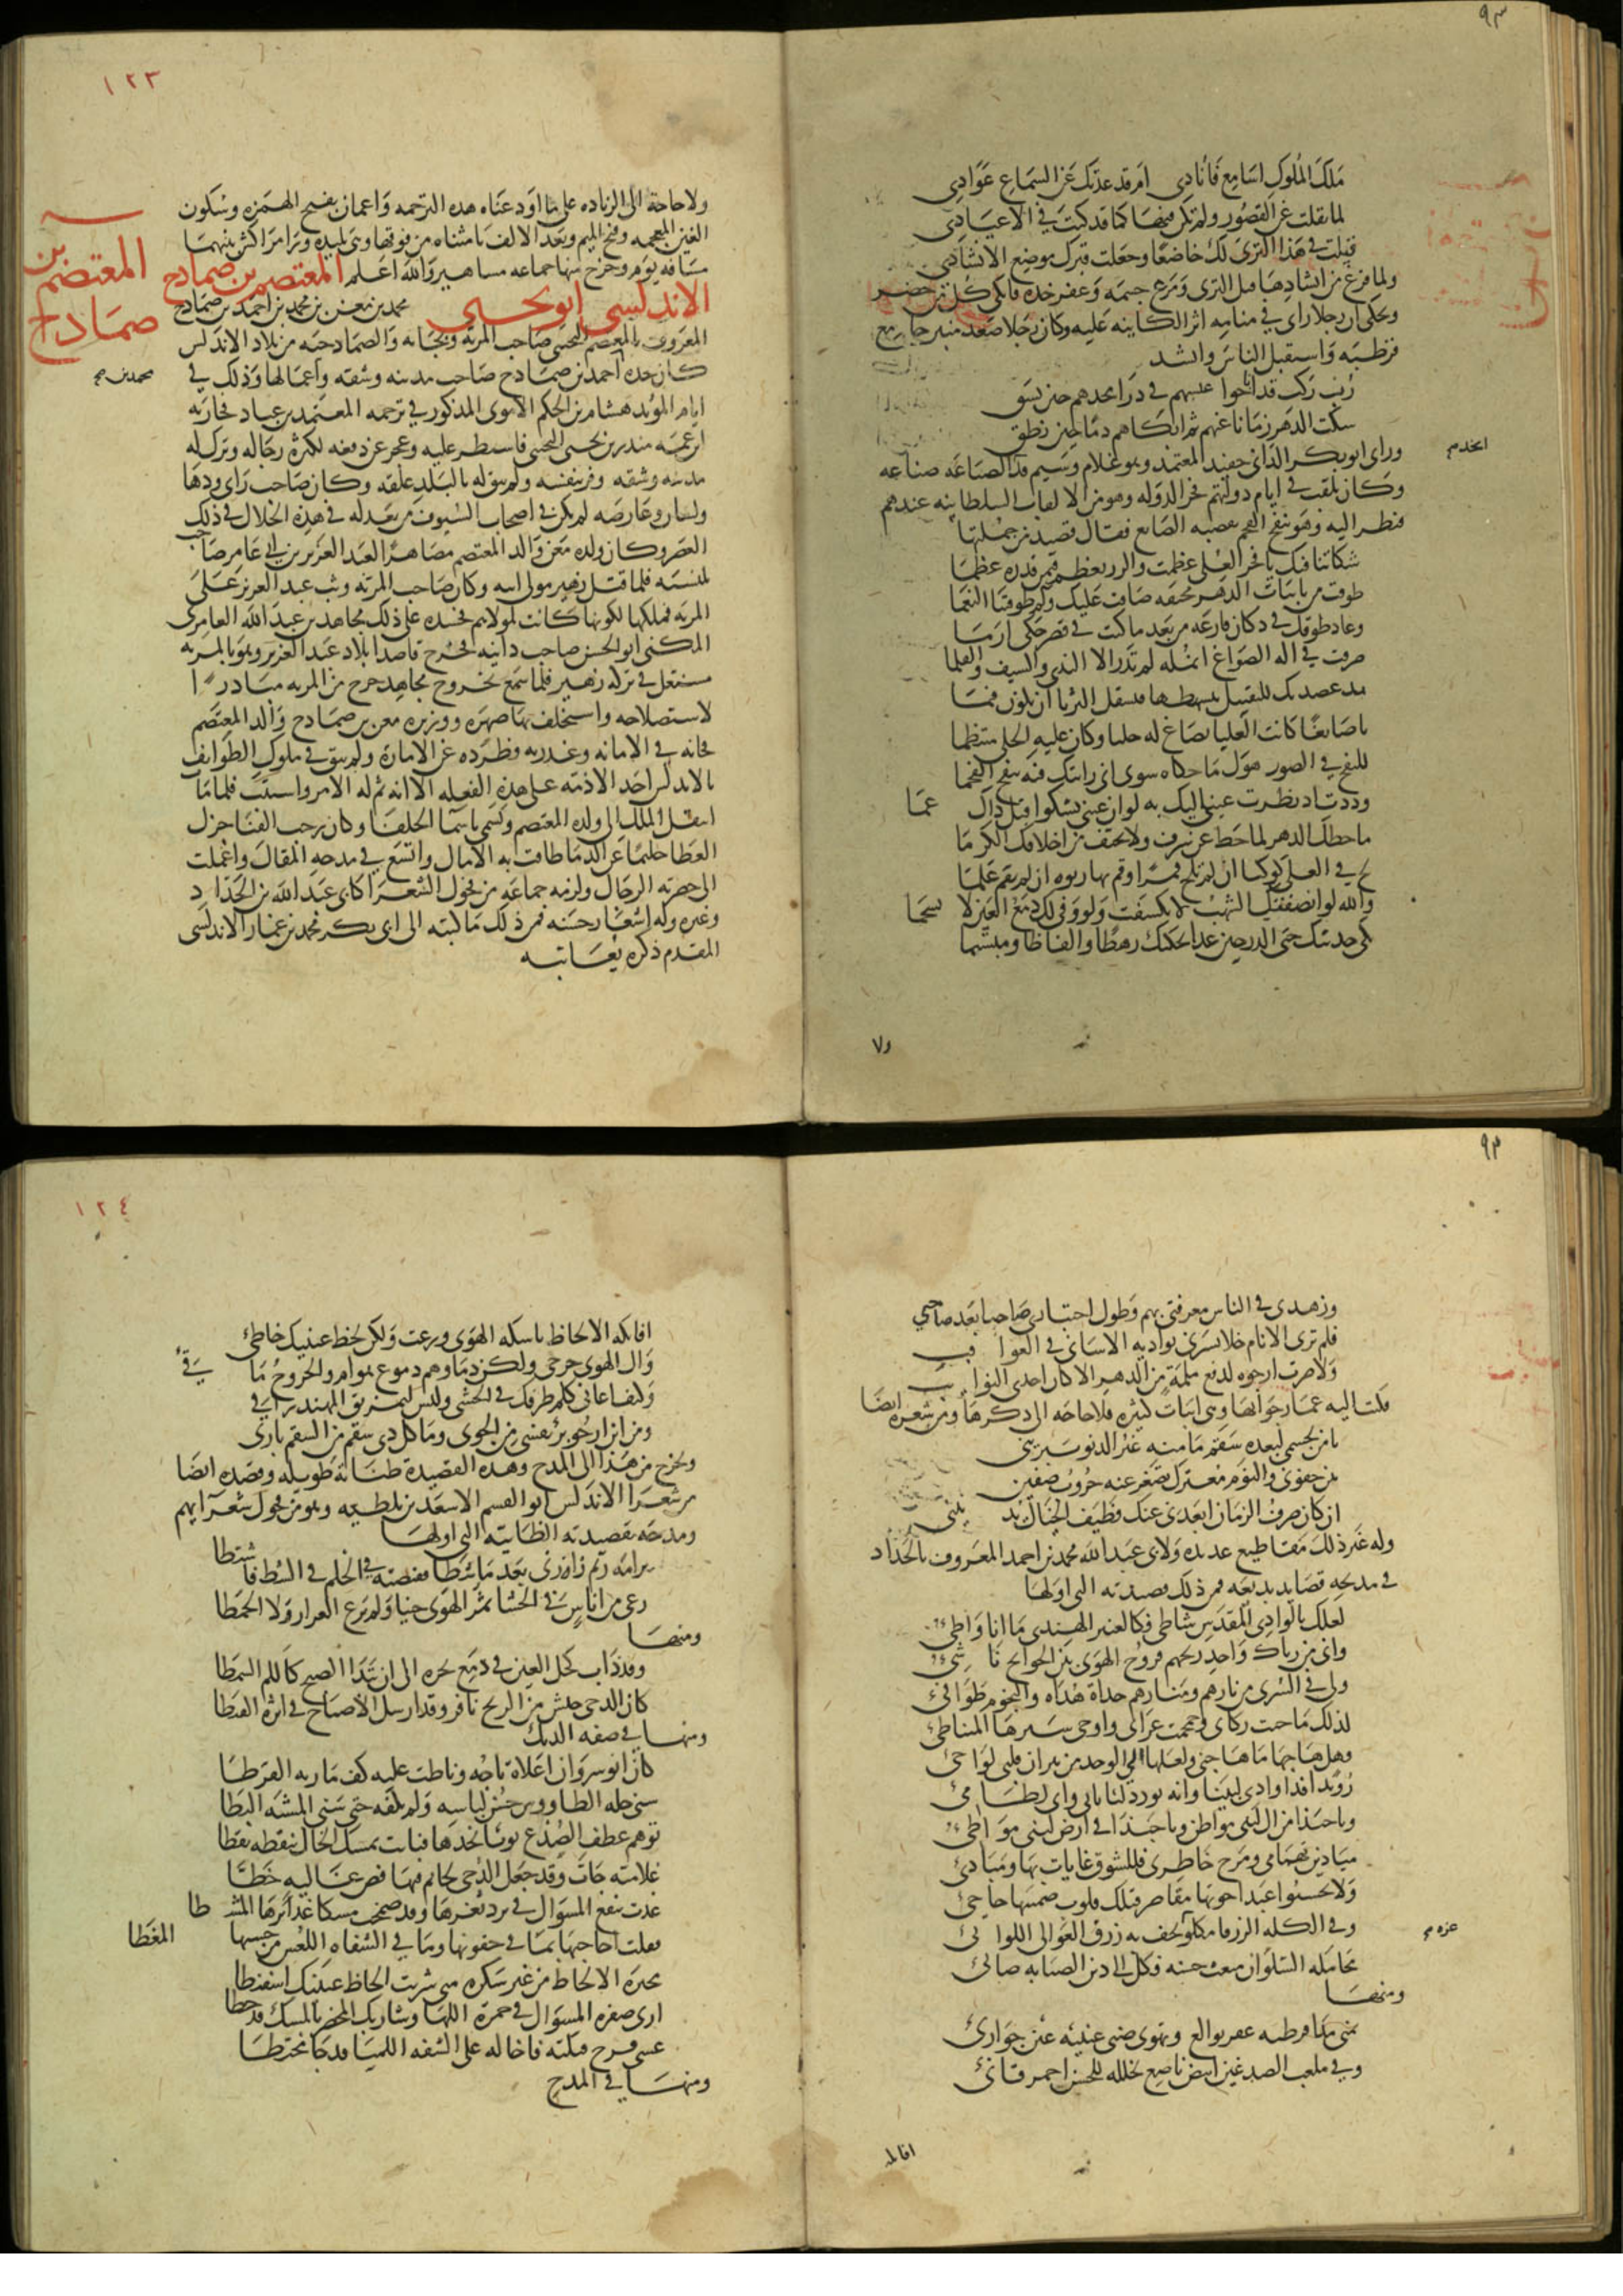 ملك الملوك اسامع فانادي ام قد عدتك عن السماع عوادي
لما نقلت عن القصور ولم تكن فيها كما قد كنت في الاعياد
قبلت في هذا الثرى لك خاضعا وجعلت قبرك موضع الانشاد
ولما فرغ من انشادها قبل الثرى ومرغ جسمه وعفر خده فابكى كل من حضر
ويحكى ان رجلا راى في منامه اثر الكاينه عليه وكان رجلا صعد منبر جامع
قرطبه واستقبل الناس وانشد
رب ركب قد اناخوا عيسهم في ذرا مجدهم حين بسق
سكت الدهر زمانا عنهم ثم ابكاهم دما حين نطق
وراى ابو بكر الداني حفيد المعتمد وهو غلام وسيم قد الصناعه صناعه
وكان يلقب في ايام دولتهم فخر الدوله وهو من الالقاب السلطانيه عندهم
فنظر اليه وهو ينفخ الفحم بقصبه الصايغ فقال قصيده من جملتها
شكاتنا فيك يا فخر العلى عظمت والرزء يعظم فيمن قدره عظما
طوقت من نايبات الدهر مخنقه ضاقت عليك وكم طوقتنا النعما
وعاد طوقك في دكان قارعه من بعد ما كنت في قصر حكى ارما
صرفت في اله الصواغ انمله لم تدر الا الندى والسيف والقلما
يد عهدتك للتقبيل تبسطها فتستقل الثريا ان تكون فما
يا صايغا كانت العليا تصاغ له حليا وكان عليه الحلى منتظما
للنفخ في الصور هول ما حكاه سوى اني رايتك فيه تنفخ الفحما
وددت اذ نظرت عيني اليك به لو ان عيني تشكو قبل ذاك عما
ما حطك الدهر لما حط عن شرف ولا تحيف من اخلاقك الكرما
لح في العلى كوكبا ان لم تلح قمرا وقم بها ربوه ان لم تقم علما
والله لو انصفتك الشهب لانكسفت ولو وفى لك دمع العين لانسجما
ابكى حديثك حتى الدر حين غدا يحكيك رهطا والفاظا ومبتسما
ولا

١٢٣
ولا حاجة الى الزياده على ما اودعناه هذه الترجمه واغمات بفتح الهمزه وسكون
الغين المعجمه وفتح الميم وبعد الالف تا مثناه من فوقها وهي بليده ورا مراكش بينهما
مسافه يوم وخرج منها جماعه مشاهير والله اعلم المعتصم بن صمادح
الاندلسي ابو يحيى محمد بن معن بن محمد بن احمد بن صمادح
المعتصم بن صمادح
المعروف بالمعتصم التجيبي صاحب المريه وبجانه والصمادحيه من بلاد الاندلس
كان جده احمد بن صمادح صاحب مدينه وشقه واعمالها وذلك في
ايام المويد هشام بن الحكم الاموي المذكور في ترجمه المعتمد بن عباد فحاربه
ابن عمه منذر بن يحيى التجيبي فاستظهر عليه وعجز عن دفعه لكثره رجاله وترك له
مدينه وشقه وفر بنفسه ولم يبق له بالبلد علقه وكان صاحب راى ودها
ولسان وعارضه لم يكن في اصحاب السيوف من يعدله في هذه الخلال في ذلك
العصر وكان ولده معن والد المعتصم مصاهرا لعبد العزيز بن ابي عامر صاحب
بلنسيه فلما قتل زهير مولى ابيه وكان صاحب المريه وثب عبد العزيز على
المريه فملكها لكونها كانت لمولاهم فحسده على ذلك مجاهد بن عبد الله العامري
المكنى ابو الحسن صاحب دانيه فخرج قاصدا بلاد عبد العزيز وهو بالمريه
مشتغل في تركه زهير فلما سمع بخروج مجاهد خرج من المريه مبادرا
لاستصلاحه واستخلف بها صهره ووزيره معن بن صمادح والد المعتصم
فخانه في الامانه وغدر به وطرده عن الاماره ولم يبق في ملوك الطوايف
بالاندلس احد الا ذمه على هذه الفعله الا انه تم له الامر واستتب فلما مات
انتقل الملك الى ولده المعتصم وتسمى باسما الخلفا وكان رحب الفنا جزل
العطا حليما عن الدما طافت به الامال واتسع في مدحه المقال واعملت
الى حضرته الرحال ولزمه جماعه من فحول الشعرا كابي عبد الله بن الحداد
وغيره وله اشعار حسنه فمن ذلك ما كتبه الى ابي بكر محمد بن عمار الاندلسي
المقدم ذكره يعاتبه

وزهدني في الناس معرفتي بهم وطول اختباري صاحبا بعد صاحب
فلم ترني الايام خلا تسرني بواديه الا ساني في العواقب
ولا صرت ارجوه لدفع ملمة من الدهر الا كان احدى النوايب
فكتب اليه ابن عمار جوابها وهي ابيات كثيره فلا حاجه الى ذكرها ومن شعره ايضا
يا من بجسمي لبعده سقم ما منه غير الدنو يبريني
بين جفوني والنوم معترك تصغر عنه حروب صفين
ان كان صرف الزمان ابعدني عنك فطيف الخيال يدنيني
وله غير ذلك مقاطيع عديده ولابي عبد الله محمد بن احمد المعروف بالحداد
في مدحه قصايد بديعه فمن ذلك قصيدته التي اولها
لعلك بالوادي المقدس شاطئ فكالعنبر الهندي ما انا واطئ
واني من رياك واجد ريحهم فروح الهوى بين الجوانح ناشئ
ولي في السرى من نارهم ومنارهم حداة هداة والنجوم طوافئ
لذلك ما حنت ركابي وحمحمت عرابي واوحى سيرها المتباطئ
فهل هاجها ما هاجني ولعلها الى الوجد من نيران قلبي لواجئ
رويدا فذا وادي لبينا وانه لورد لباناتي واني لظامئ
ويا حبذا من ال لبنى مواطن ويا حبذا في ارض لبنى مواطئ
ميادين تهيامي ومسرح خاطري فللشوق غايات بها ومبادئ
ولا تحسبوا غيدا حوتها مقاصر فتلك قلوب ضمنتها جآجئ
وفي الكله الزرقا مكلو عزه تحف به زرق العوالي اللوالئ
محا مله السلوان مبعث حسنه فكل الى دين الصبابه صابئ
ومنها
وفي ملعب الصدغين ابيض ناصع تخلله للحسن احمر قانئ

١٢٤
افاتكه الالحاظ ناسكه الهوى ورعت ولكن لحظ عينيك خاطئ
وال الهوى جرحى ولكن دماوهم دموع هوام والجروح ماقئ
وكيف اعاني كلم طرفك في الحشى وليس لتمزيق المهند رافئ
ومن اين ارجو برء نفسي من الجوى وما كل ذي سقم من السقم بارئ
وتخرج من هذا الى المدح وهذه القصيدة طنانه طويله وقصده ايضا
من شعرا الاندلس ابو القسم الاسعد بن بلطيه وهو من فحول شعرايهم
ومدحه بقصيدته الطائيه التي اولها
برامة ريم زارني بعد ما شطا تقنصته في الحلم في الشط فاشتطا
رعى من اناس في الحشا ثمر الهوى جنيا ولم يرع العرار ولا الخمطا
ومنها
وقد ذاب كحل العين في دمع فجره الى ان تبدا الصبح كاللمه الشمطا
كان الدجى جيش من الزنج نافر وقد ارسل الاصباح في اثره القبطا
ومنها في صفه الديك
كان انوشروان اعلاه تاجه وناطت عليه كف ماريه القرطا
سبى حله الطاووس حسن لباسه ولم يكفه حتى سبى المشيه البطا
توهم عطف الصدغ نونا بخدها فباتت بمسك الخال تنقطه نقطا
غلاميه جات وقد جعل الدجى لخاتم فيها فص غاليه خطا
غدت تنقع المسواك في برد ثغرها وقد ضمخت مسكا غدائرها المشطا
فقلت احاجيها بما في جفونها وما في الشفاه اللعس من حسنها المعطا
محيرة الالحاظ من غير سكره متى شربت الحاظ عينيك اسفنطا
ارى صفره المسواك في حمرة اللمى وشاربك المخضر بالمسك قد خطا
عسى قزح قبلته فاخاله على الشفه اللميا قد جا مختطا
ومنها في المدح